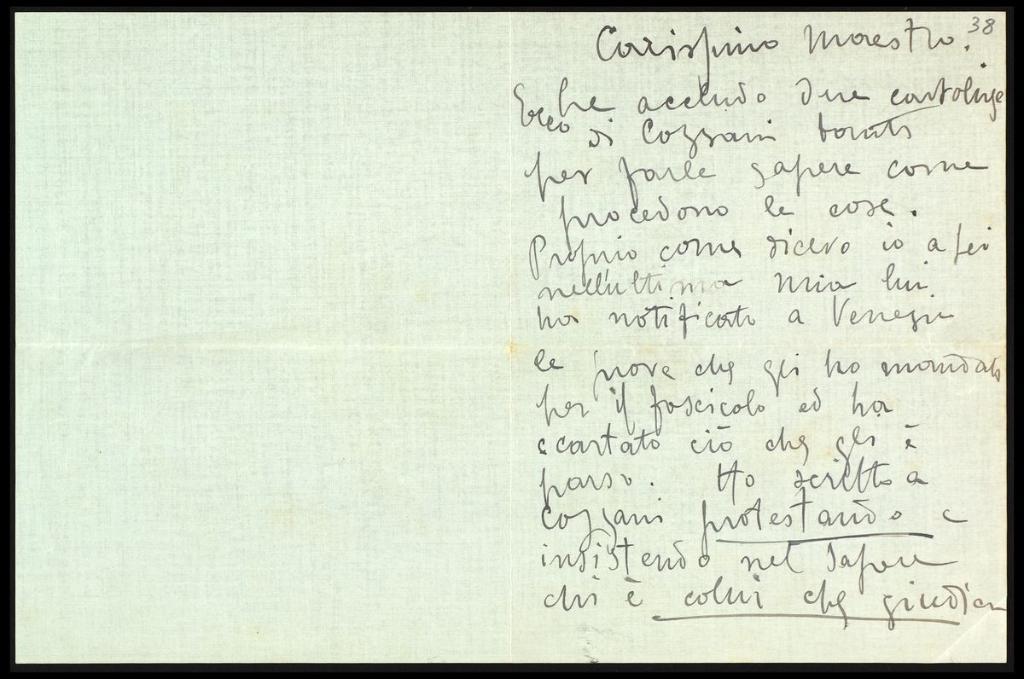 38
Carissimo Maestro.
Ecco che accludo due cartoline
di Cozzani
per farle sapere come
procedono le cose.
Proprio come dicevo io a lei
nell'ultima mia lui
ha notificato a Venezia
le prove che gli ho mandato
per il fascicolo ed ha
scartato ciò che gli è
parso. Ho scritto a
Cozzani protestando e
insistendo nel sapere
chi è colui che giudica